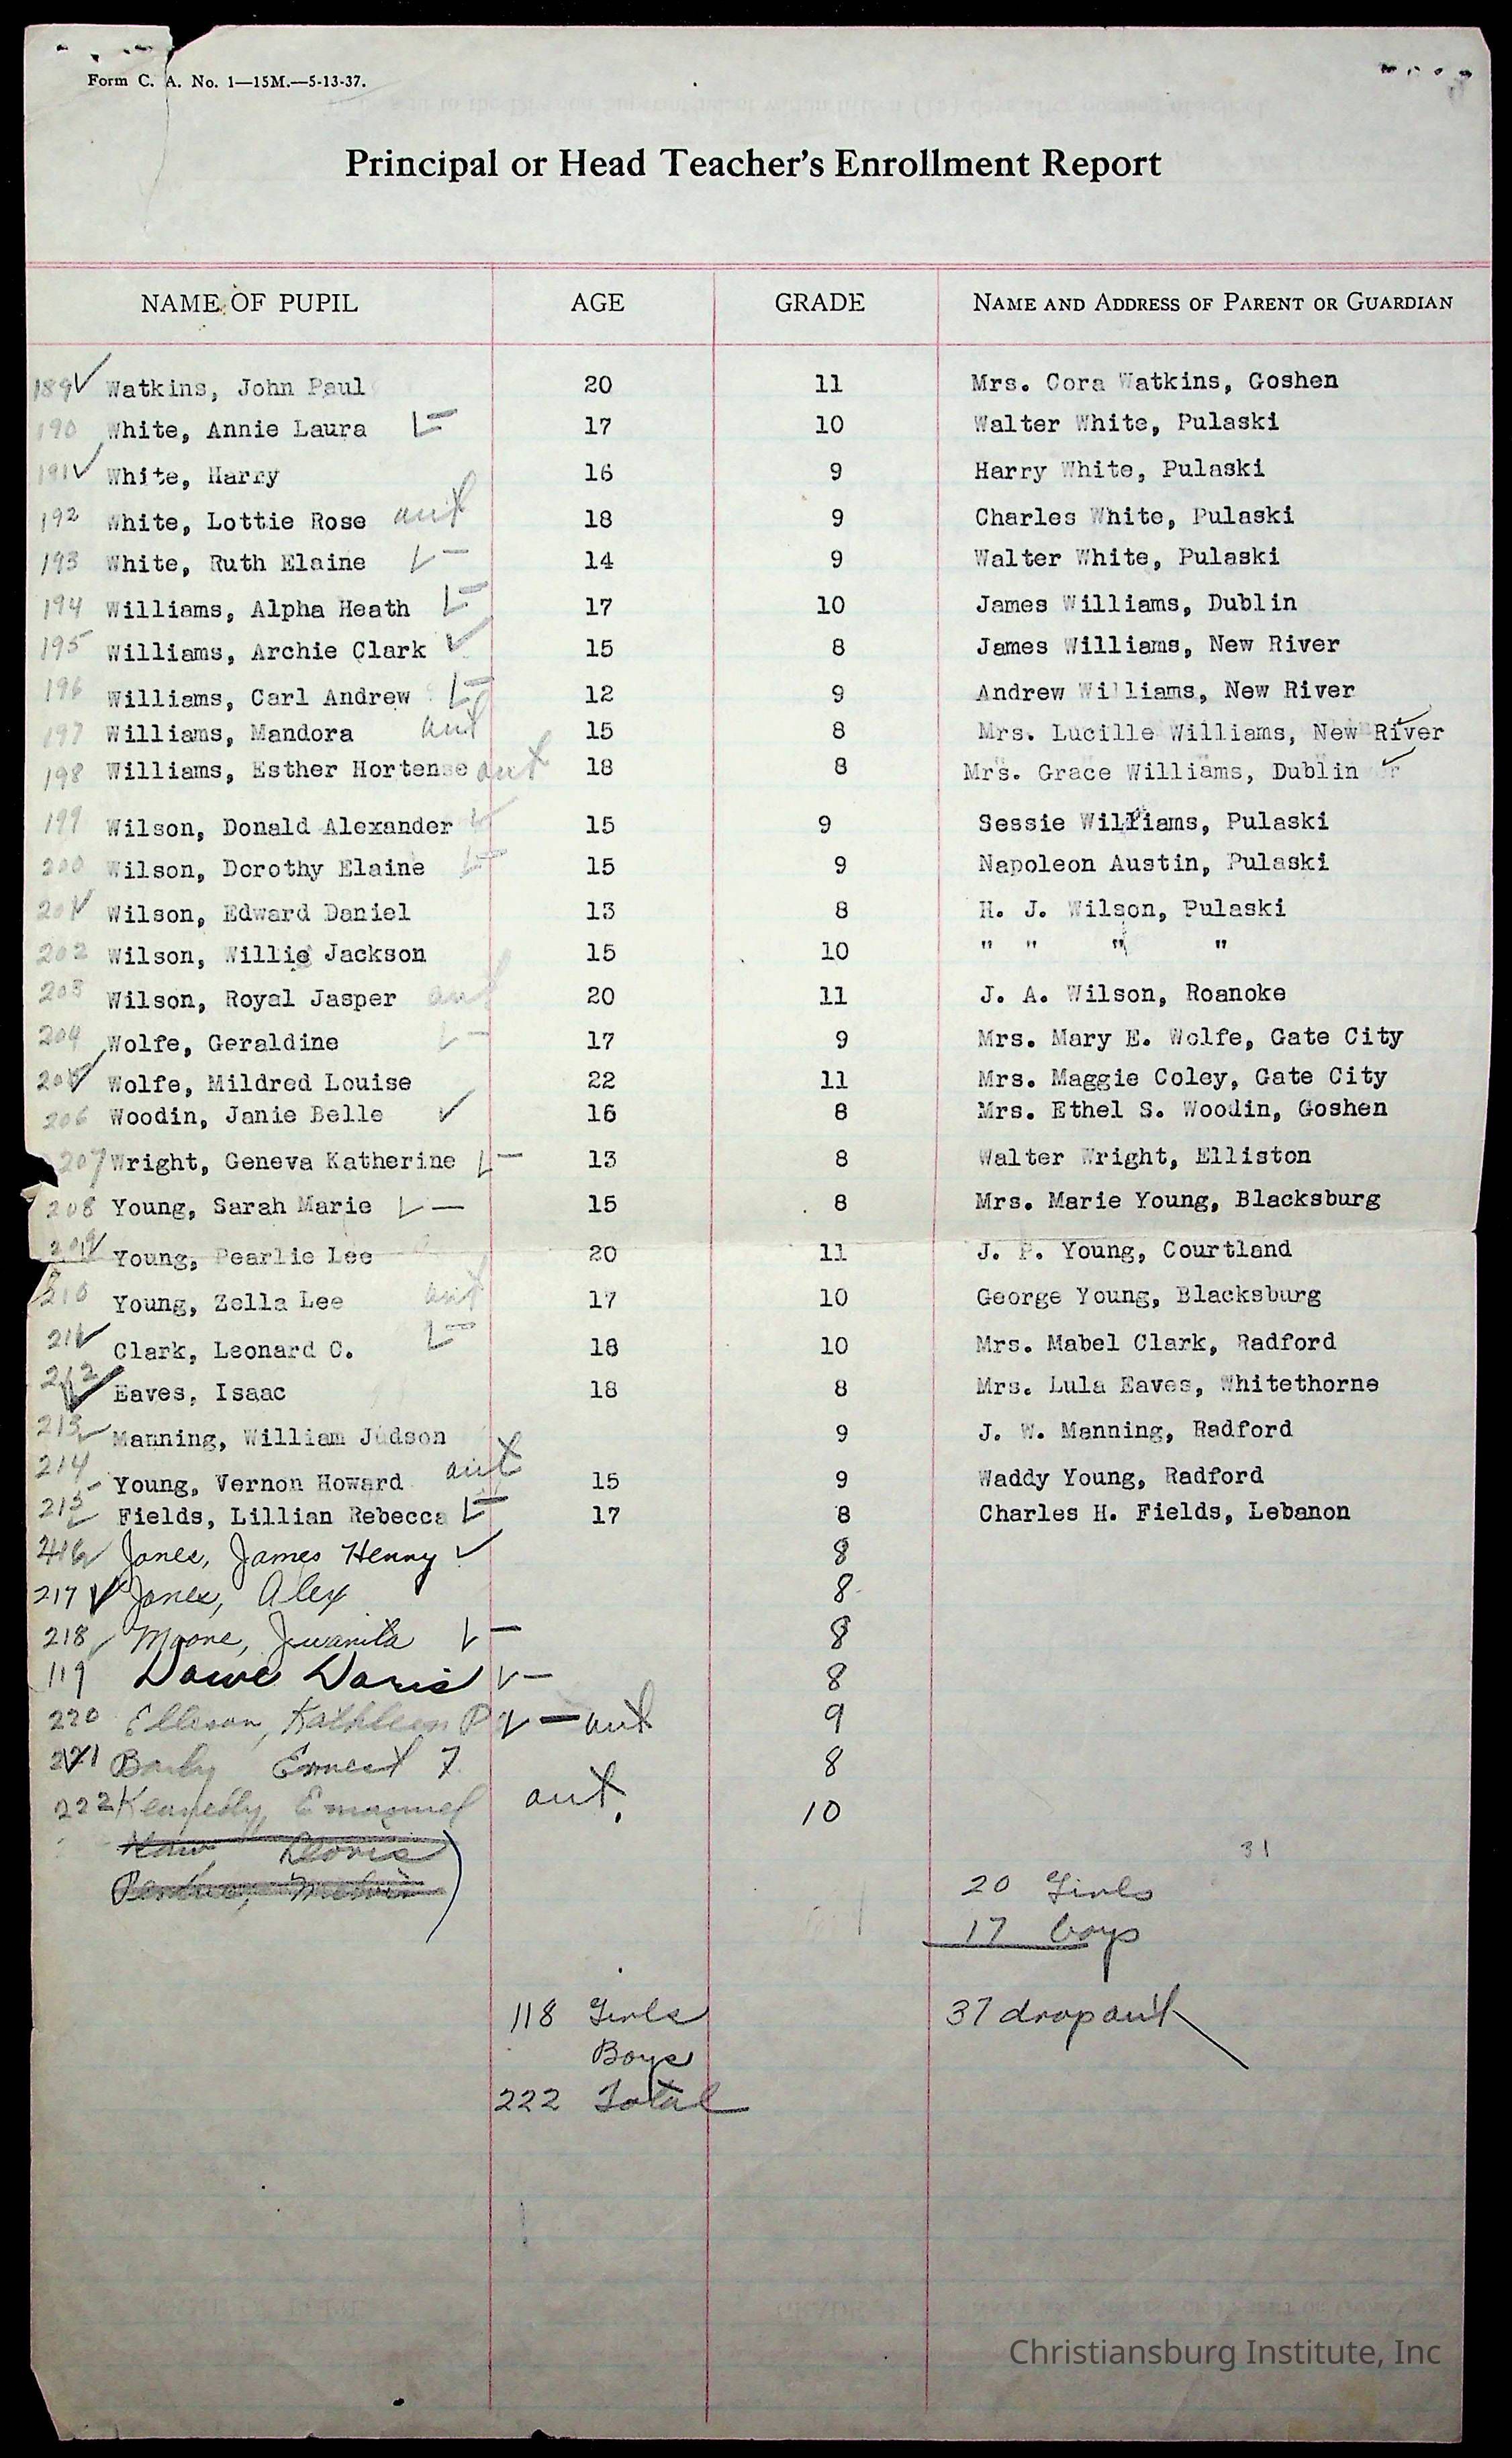 Form C. A. No. 1—15M.—5-13-37.
Principal or Head Teacher's Enrollment Report
NAME OF PUPIL AGE GRADE NAME AND ADDRESS OF PARENT OR GUARDIAN
189 ✓ Watkins, John Paul 20 11 Mrs. Cora Watkins, Goshen
190 White, Annie Laura ✓– 17 10 Walter White, Pulaski
191 ✓ White, Harry 16 9 Harry White, Pulaski
192 White, Lottie Rose out 18 9 Charles White, Pulaski
193 White, Ruth Elaine ✓– 14 9 Walter White, Pulaski
194 Williams, Alpha Heath ✓– 17 10 James Williams, Dublin
195 Williams, Archie Clark ✓ 15 8 James Williams, New River
196 Williams, Carl Andrew ✓– 12 9 Andrew Williams, New River
197 Williams, Mandora out 15 8 Mrs. Lucille Williams, New River ✓
198 Williams, Esther Hortense out 18 8 Mrs. Grace Williams, Dublin ✓
199 Wilson, Donald Alexander ✓ 15 9 Sessie Williams, Pulaski
200 Wilson, Dorothy Elaine ✓– 15 9 Napoleon Austin, Pulaski
201 ✓ Wilson, Edward Daniel 13 8 H. J. Wilson, Pulaski
202 Wilson, Willie Jackson 15 10 " " " "
203 Wilson, Royal Jasper out 20 11 J. A. Wilson, Roanoke
204 Wolfe, Geraldine ✓– 17 9 Mrs. Mary E. Wolfe, Gate City
205 ✓ Wolfe, Mildred Louise 22 11 Mrs. Maggie Coley, Gate City
206 Woodin, Janie Belle ✓ 16 8 Mrs. Ethel S. Woodin, Goshen
207 Wright, Geneva Katherine ✓– 13 8 Walter Wright, Elliston
208 Young, Sarah Marie ✓– 15 8 Mrs. Marie Young, Blacksburg
209 ✓ Young, Pearlie Lee 20 11 J. P. Young, Courtland
210 Young, Zella Lee out 17 10 George Young, Blacksburg
211 ✓ Clark, Leonard C. ✓– 18 10 Mrs. Mabel Clark, Radford
212 ✓ Eaves, Isaac 18 8 Mrs. Lula Eaves, Whitethorne
213 ✓ Manning, William Judson 9 J. W. Manning, Radford
214 Young, Vernon Howard out 15 9 Waddy Young, Radford
215 ✓ Fields, Lillian Rebecca ✓– 17 8 Charles H. Fields, Lebanon
216 ✓ Jones, James Henry ✓ 8
217 ✓ Jones, Alex 8
218 ✓ Moore, Juanita ✓– 8
119 Dowe Doris ✓– 8
220 Elleson, Kathleen P ✓ – out 9
221 Ernest 7 8
222 Kennedy, Emanuel out. 10
Doris
31
20 Girls
17 boys
118 Girls 37 dropout
Boys
222 Total
Christiansburg Institute, Inc